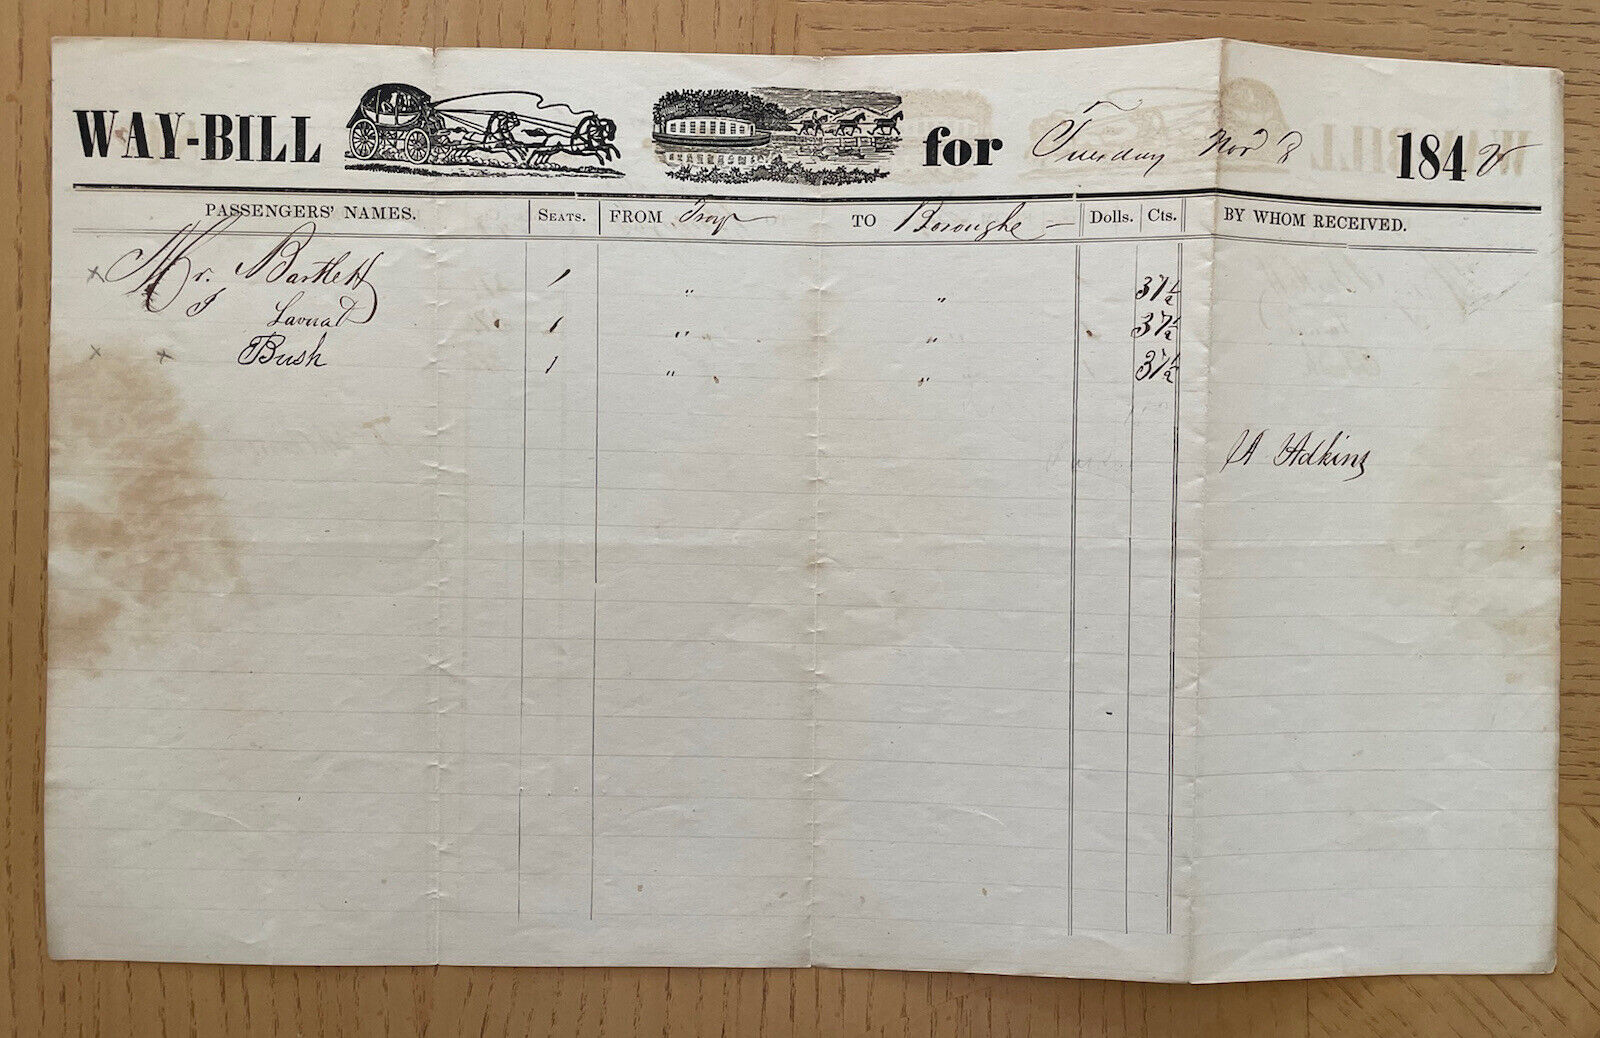 WAY-BILL for Tuesday Nov 8 1842
PASSENGERS' NAMES. SEATS. FROM Troy TO Boroughs Dolls. Cts. BY WHOM RECEIVED.
x Mr. Bartlett 1 " " 37 1/2
1 " " 37 1/2
x x Bush 1 " " 37 1/2
A Adkins